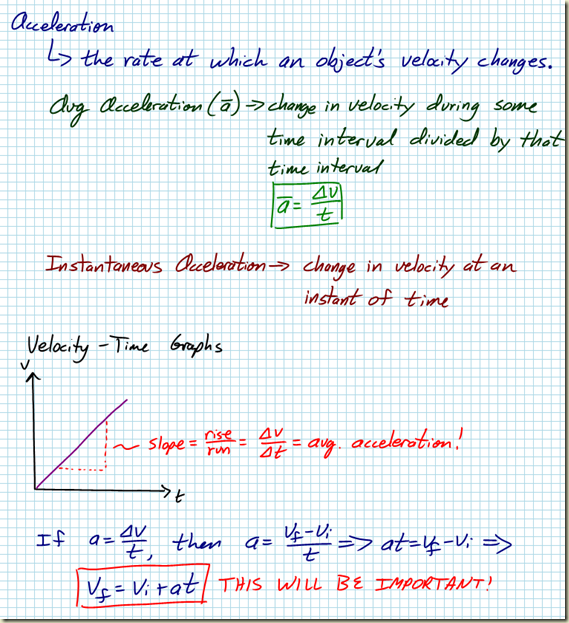 Acceleration
↳ the rate at which an object's velocity changes.
Avg Acceleration (a̅) → change in velocity during some
time interval divided by that
time interval
a̅ = Δv/t
Instantaneous Acceleration → change in velocity at an
instant of time
Velocity - Time Graphs
v
slope = rise/run = Δv/Δt = avg. acceleration!
t
If a = Δv/t, then a = (vf - vi)/t => at = vf - vi =>
Vf = Vi + at THIS WILL BE IMPORTANT!